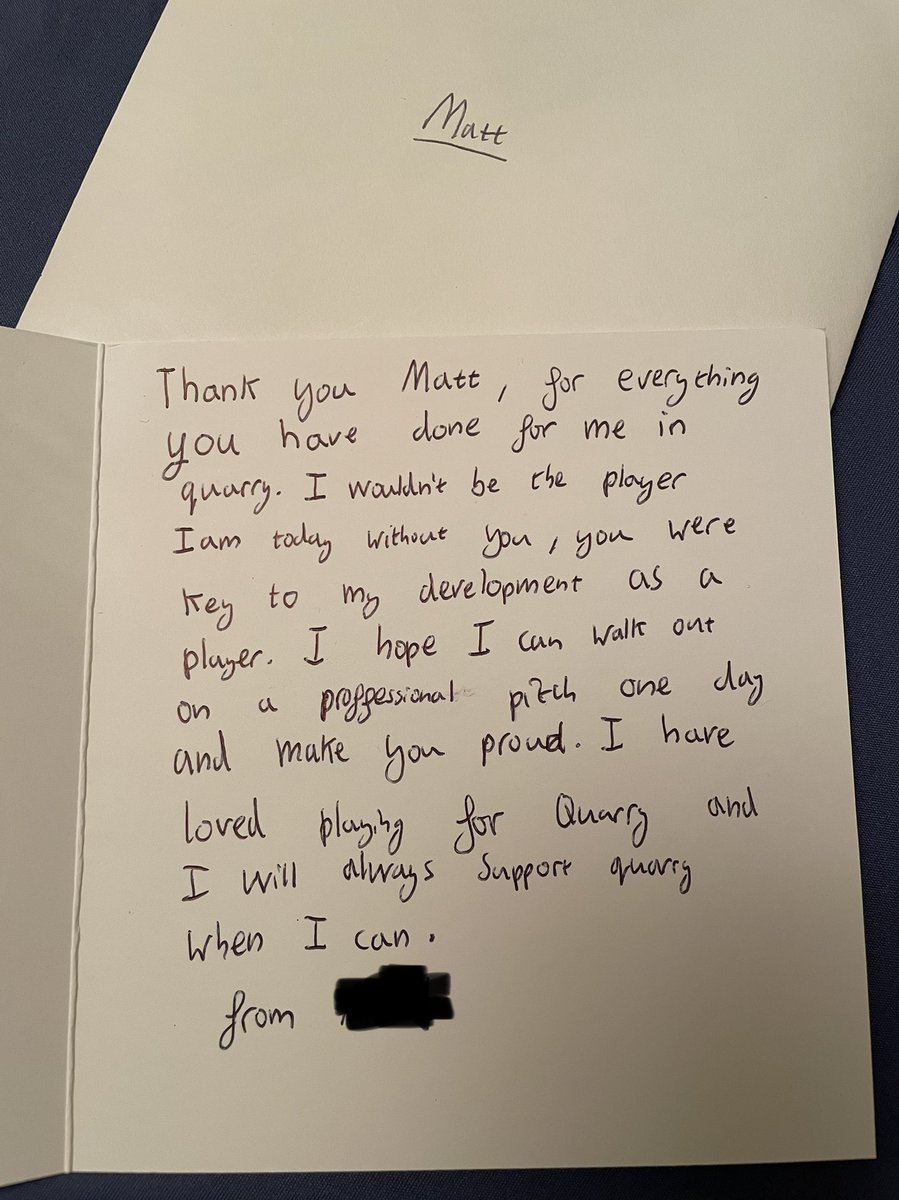 Matt
Thank you Matt, for everything
you have done for me in
quarry. I wouldn't be the player
I am today without you, you were
key to my development as a
player. I hope I can walk out
on a proffessional pitch one day
and make you proud. I have
loved playing for Quarry and
I will always support quarry
when I can.
from